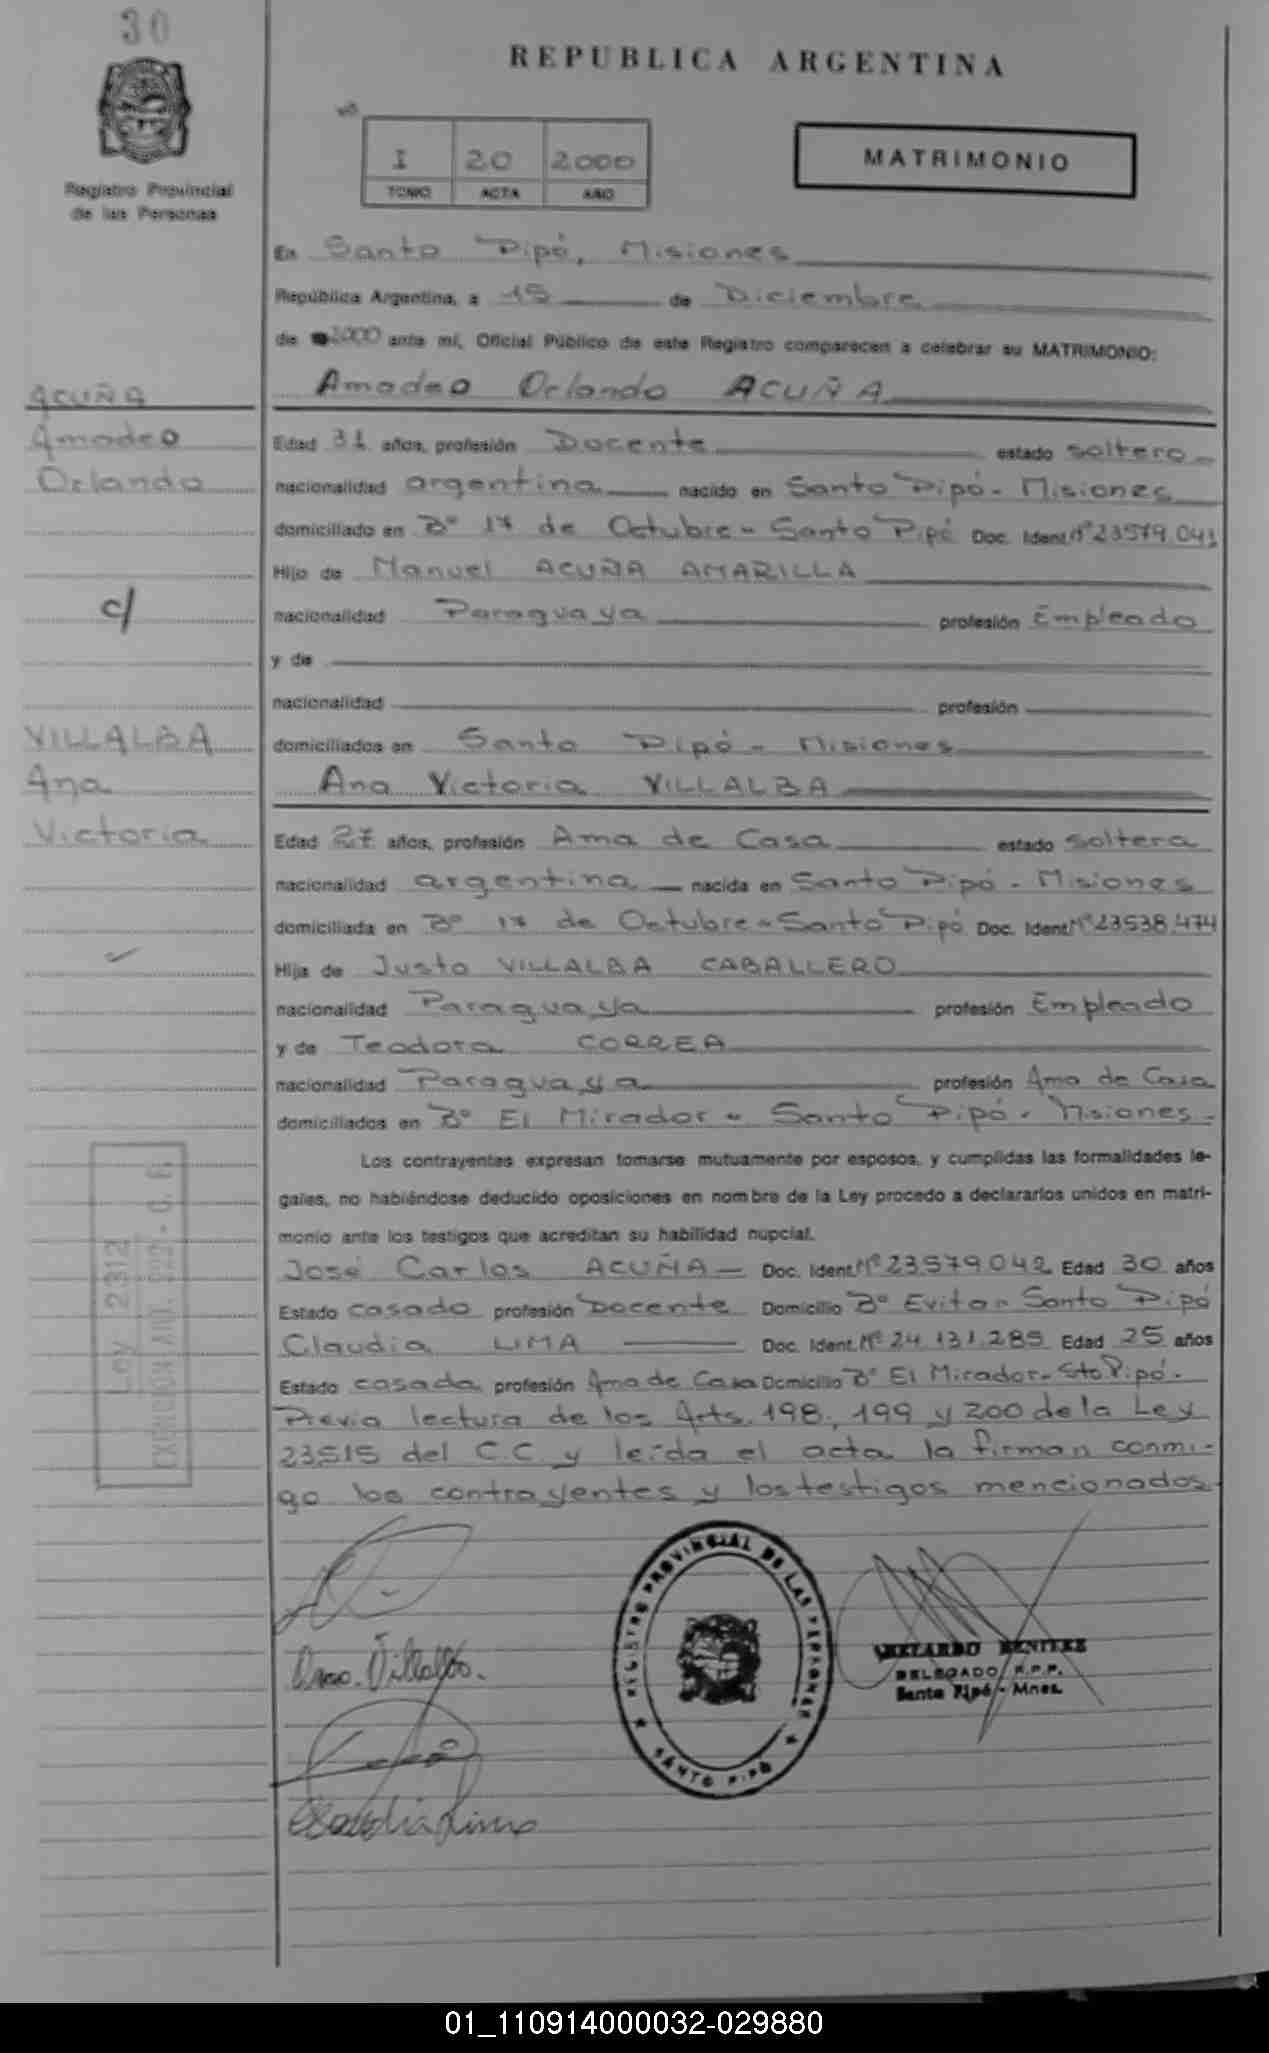 30
REPUBLICA ARGENTINA
Nº
I 20 2000
TOMO ACTA AÑO
MATRIMONIO
Registro Provincial
de las Personas
En Santo Pipó, Misiones
República Argentina, a 15 de Diciembre
de 2000 ante mí, Oficial Público de este Registro comparecen a celebrar su MATRIMONIO:
Amadeo Orlando ACUÑA
ACUÑA
Amadeo
Orlando
c/
VILLALBA
Ana
Victoria
Edad 31 años, profesión Docente estado soltero
nacionalidad argentina nacido en Santo Pipó - Misiones
domiciliado en Bº 17 de Octubre - Santo Pipó Doc. Ident. Nº 23579.041
Hijo de Manuel ACUÑA AMARILLA
nacionalidad Paraguaya profesión Empleado
y de
nacionalidad profesión
domiciliados en Santo Pipó - Misiones
Ana Victoria VILLALBA
Edad 27 años, profesión Ama de Casa estado soltera
nacionalidad argentina nacida en Santo Pipó - Misiones
domiciliada en Bº 17 de Octubre - Santo Pipó Doc. Ident. Nº 23538.474
Hija de Justo VILLALBA CABALLERO
nacionalidad Paraguaya profesión Empleado
y de Teodora CORREA
nacionalidad Paraguaya profesión Ama de Casa
domiciliados en Bº El Mirador - Santo Pipó - Misiones.
Los contrayentes expresan tomarse mutuamente por esposos, y cumplidas las formalidades le-
gales, no habiéndose deducido oposiciones en nombre de la Ley procedo a declararlos unidos en matri-
monio ante los testigos que acreditan su habilidad nupcial.
José Carlos ACUÑA - Doc. Ident. Nº 23579042 Edad 30 años
Estado casado profesión Docente Domicilio Bº Evita - Santo Pipó
Claudia LIMA Doc. Ident. Nº 24.131.285 Edad 25 años
Estado casada profesión Ama de Casa Domicilio Bº El Mirador - Sto Pipó.
Previa lectura de los Arts. 198, 199 y 200 de la Ley
23515 del C.C. y leída el acta la firman conmi-
go los contrayentes y los testigos mencionados
Ley 2312
Ana Villalba.
Claudia Lima
REGISTRO PROVINCIAL DE LAS PERSONAS
SANTO PIPÓ
ABELARDO BENITEZ
DELEGADO R.P.P.
Santo Pipó - Mnes.
01_110914000032-029880